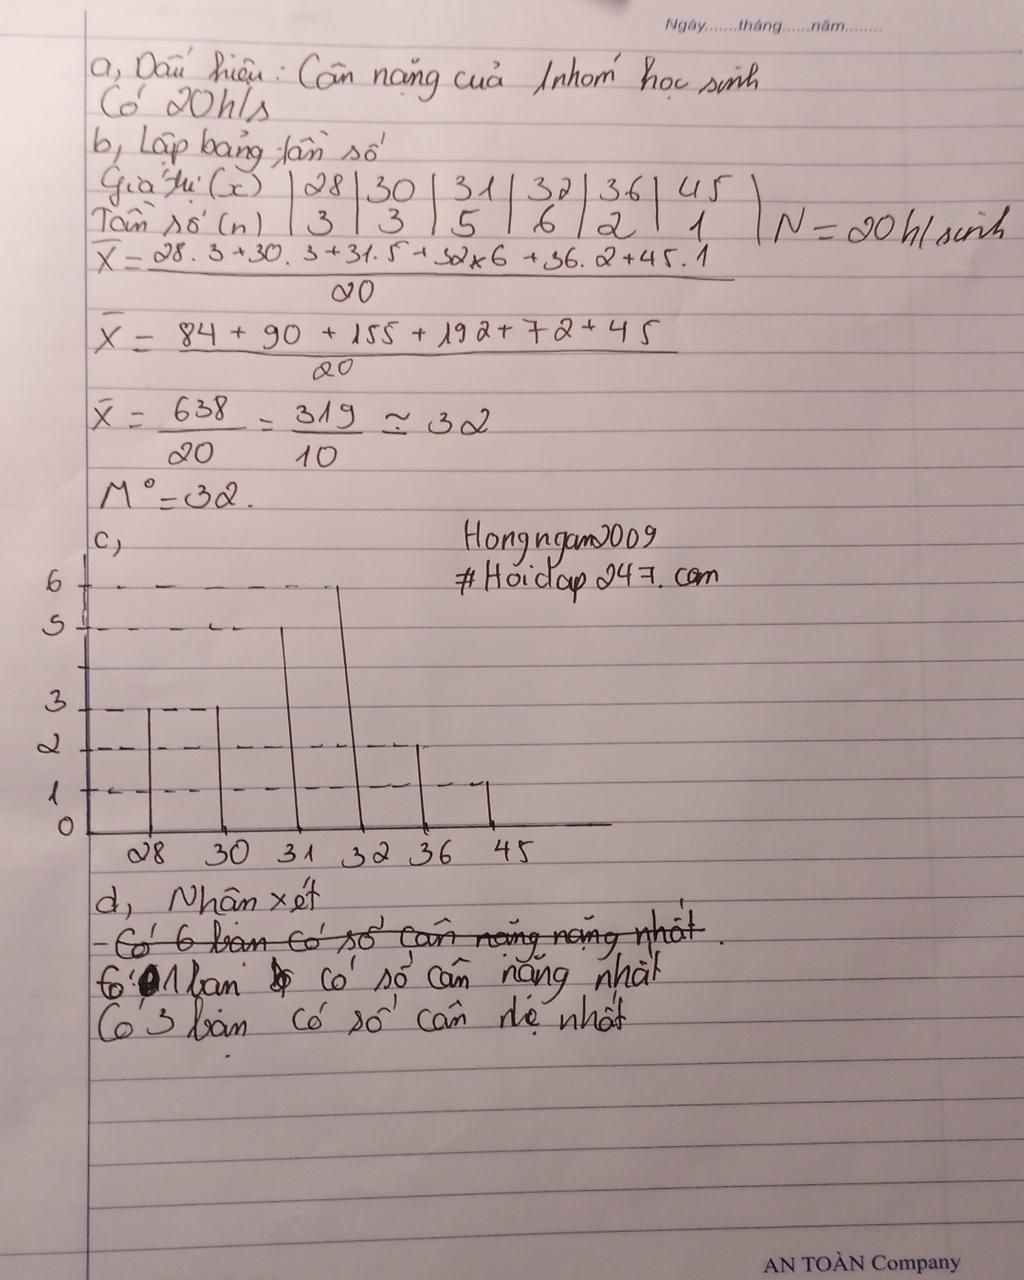 Ngày.......tháng......năm.........
a, Dấu hiệu: Cân nặng của 1 nhóm học sinh
Có 20 h/s
b, Lập bảng tần số
Giá trị (x) | 28 | 30 | 31 | 32 | 36 | 45 |
Tần số (n) | 3 | 3 | 5 | 6 | 2 | 1 | N = 20 h/sinh
X̄ = 28 . 3 + 30 . 3 + 31 . 5 + 32 x 6 + 36 . 2 + 45 . 1
20
X̄ = 84 + 90 + 155 + 192 + 72 + 45
20
X̄ = 638 = 319 ≃ 32
20 10
M° = 32.
c,
Hongngam2009
#Hoidap 247. com
6
5
3
2
1
0
28 30 31 32 36 45
d, Nhân xét
- Có 6 bàn có số cân nặng nặng nhất.
Có 1 ban có số cân nặng nhất
Có 3 bàn có số cân nhẹ nhất
AN TOÀN Company